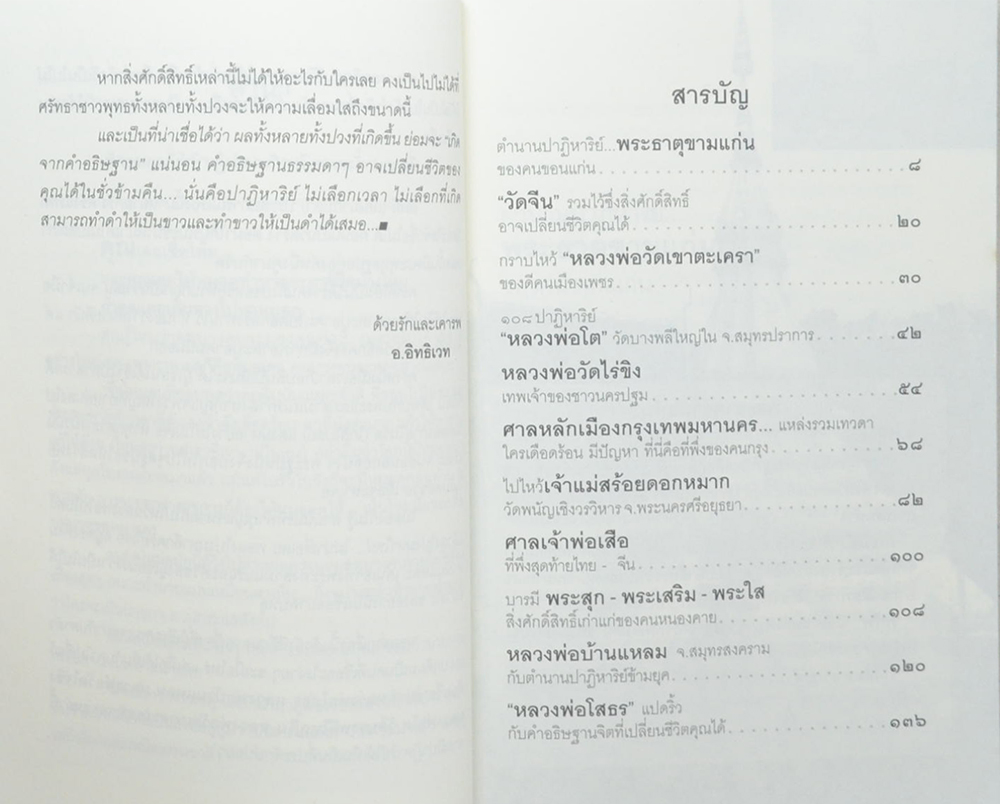 หากสิ่งศักดิ์สิทธิ์เหล่านี้ไม่ได้ให้อะไรกับใครเลย คงเป็นไปไม่ได้ที่
ศรัทธาชาวพุทธทั้งหลายทั้งปวงจะให้ความเลื่อมใสถึงขนาดนี้
และเป็นที่น่าเชื่อได้ว่า ผลทั้งหลายทั้งปวงที่เกิดขึ้น ย่อมจะ "เกิด
จากคำอธิษฐาน" แน่นอน คำอธิษฐานธรรมดาๆ อาจเปลี่ยนชีวิตของ
คุณได้ในชั่วข้ามคืน... นั่นคือปาฏิหาริย์ ไม่เลือกเวลา ไม่เลือกที่เกิด
สามารถทำดำให้เป็นขาวและทำขาวให้เป็นดำได้เสมอ...■
ด้วยรักและเคารพ
อ.อิทธิเวท
สารบัญ
ตำนานปาฏิหาริย์...พระธาตุขามแก่น
ของคนขอนแก่น . . . . . . . . . . . . . . . . . . . . . . . . ๘
"วัดจีน" รวมไว้ซึ่งสิ่งศักดิ์สิทธิ์
อาจเปลี่ยนชีวิตคุณได้ . . . . . . . . . . . . . . . . . . . . ๒๐
กราบไหว้ "หลวงพ่อวัดเขาตะเครา"
ของดีคนเมืองเพชร . . . . . . . . . . . . . . . . . . . . . . ๓๐
๑๐๘ ปาฏิหาริย์
"หลวงพ่อโต" วัดบางพลีใหญ่ใน จ.สมุทรปราการ . . . . . . . ๔๒
หลวงพ่อวัดไร่ขิง
เทพเจ้าของชาวนครปฐม . . . . . . . . . . . . . . . . . . . ๕๔
ศาลหลักเมืองกรุงเทพมหานคร... แหล่งรวมเทวดา
ใครเดือดร้อน มีปัญหา ที่นี่คือที่พึ่งของคนกรุง . . . . . . . . . . ๖๘
ไปไหว้เจ้าแม่สร้อยดอกหมาก
วัดพนัญเชิงวรวิหาร จ.พระนครศรีอยุธยา . . . . . . . . . . . . ๘๒
ศาลเจ้าพ่อเสือ
ที่พึ่งสุดท้ายไทย - จีน . . . . . . . . . . . . . . . . . . . . ๑๐๐
บารมี พระสุก - พระเสริม - พระใส
สิ่งศักดิ์สิทธิ์เก่าแก่ของคนหนองคาย . . . . . . . . . . . . . . ๑๐๘
หลวงพ่อบ้านแหลม จ.สมุทรสงคราม
กับตำนานปาฏิหาริย์ข้ามยุค . . . . . . . . . . . . . . . . . ๑๒๐
"หลวงพ่อโสธร" แปดริ้ว
กับคำอธิษฐานจิตที่เปลี่ยนชีวิตคุณได้ . . . . . . . . . . . . . ๑๓๖